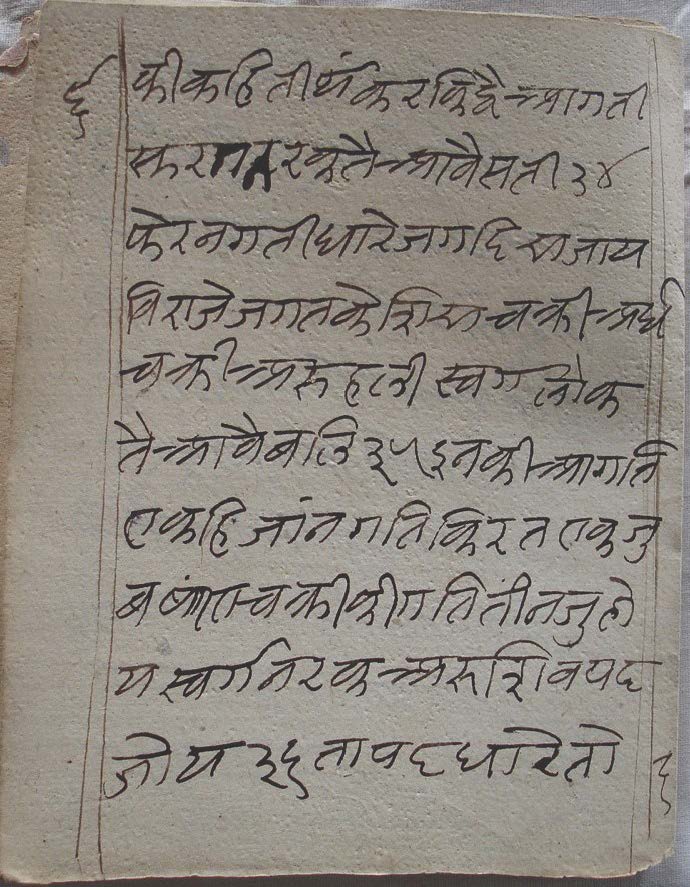 ६
की कहि तीर्थंकर किहै आगती
सुर नरक तै आवै सती ३४
फेर न गती धारै जगदि स जाय
विराजे जगत के शिस चक्री अर्ध
चक्री अरु हली स्वर्ग लोक
तै आवै बलि ३५ इनकी आगति
एकहि जांन गति किरत एक जु
बषांण चक्री की गति तीन जु हो
य स्वर्ग नरक अरु शिव पद
जोय ३६ ताप द धारे तो
६